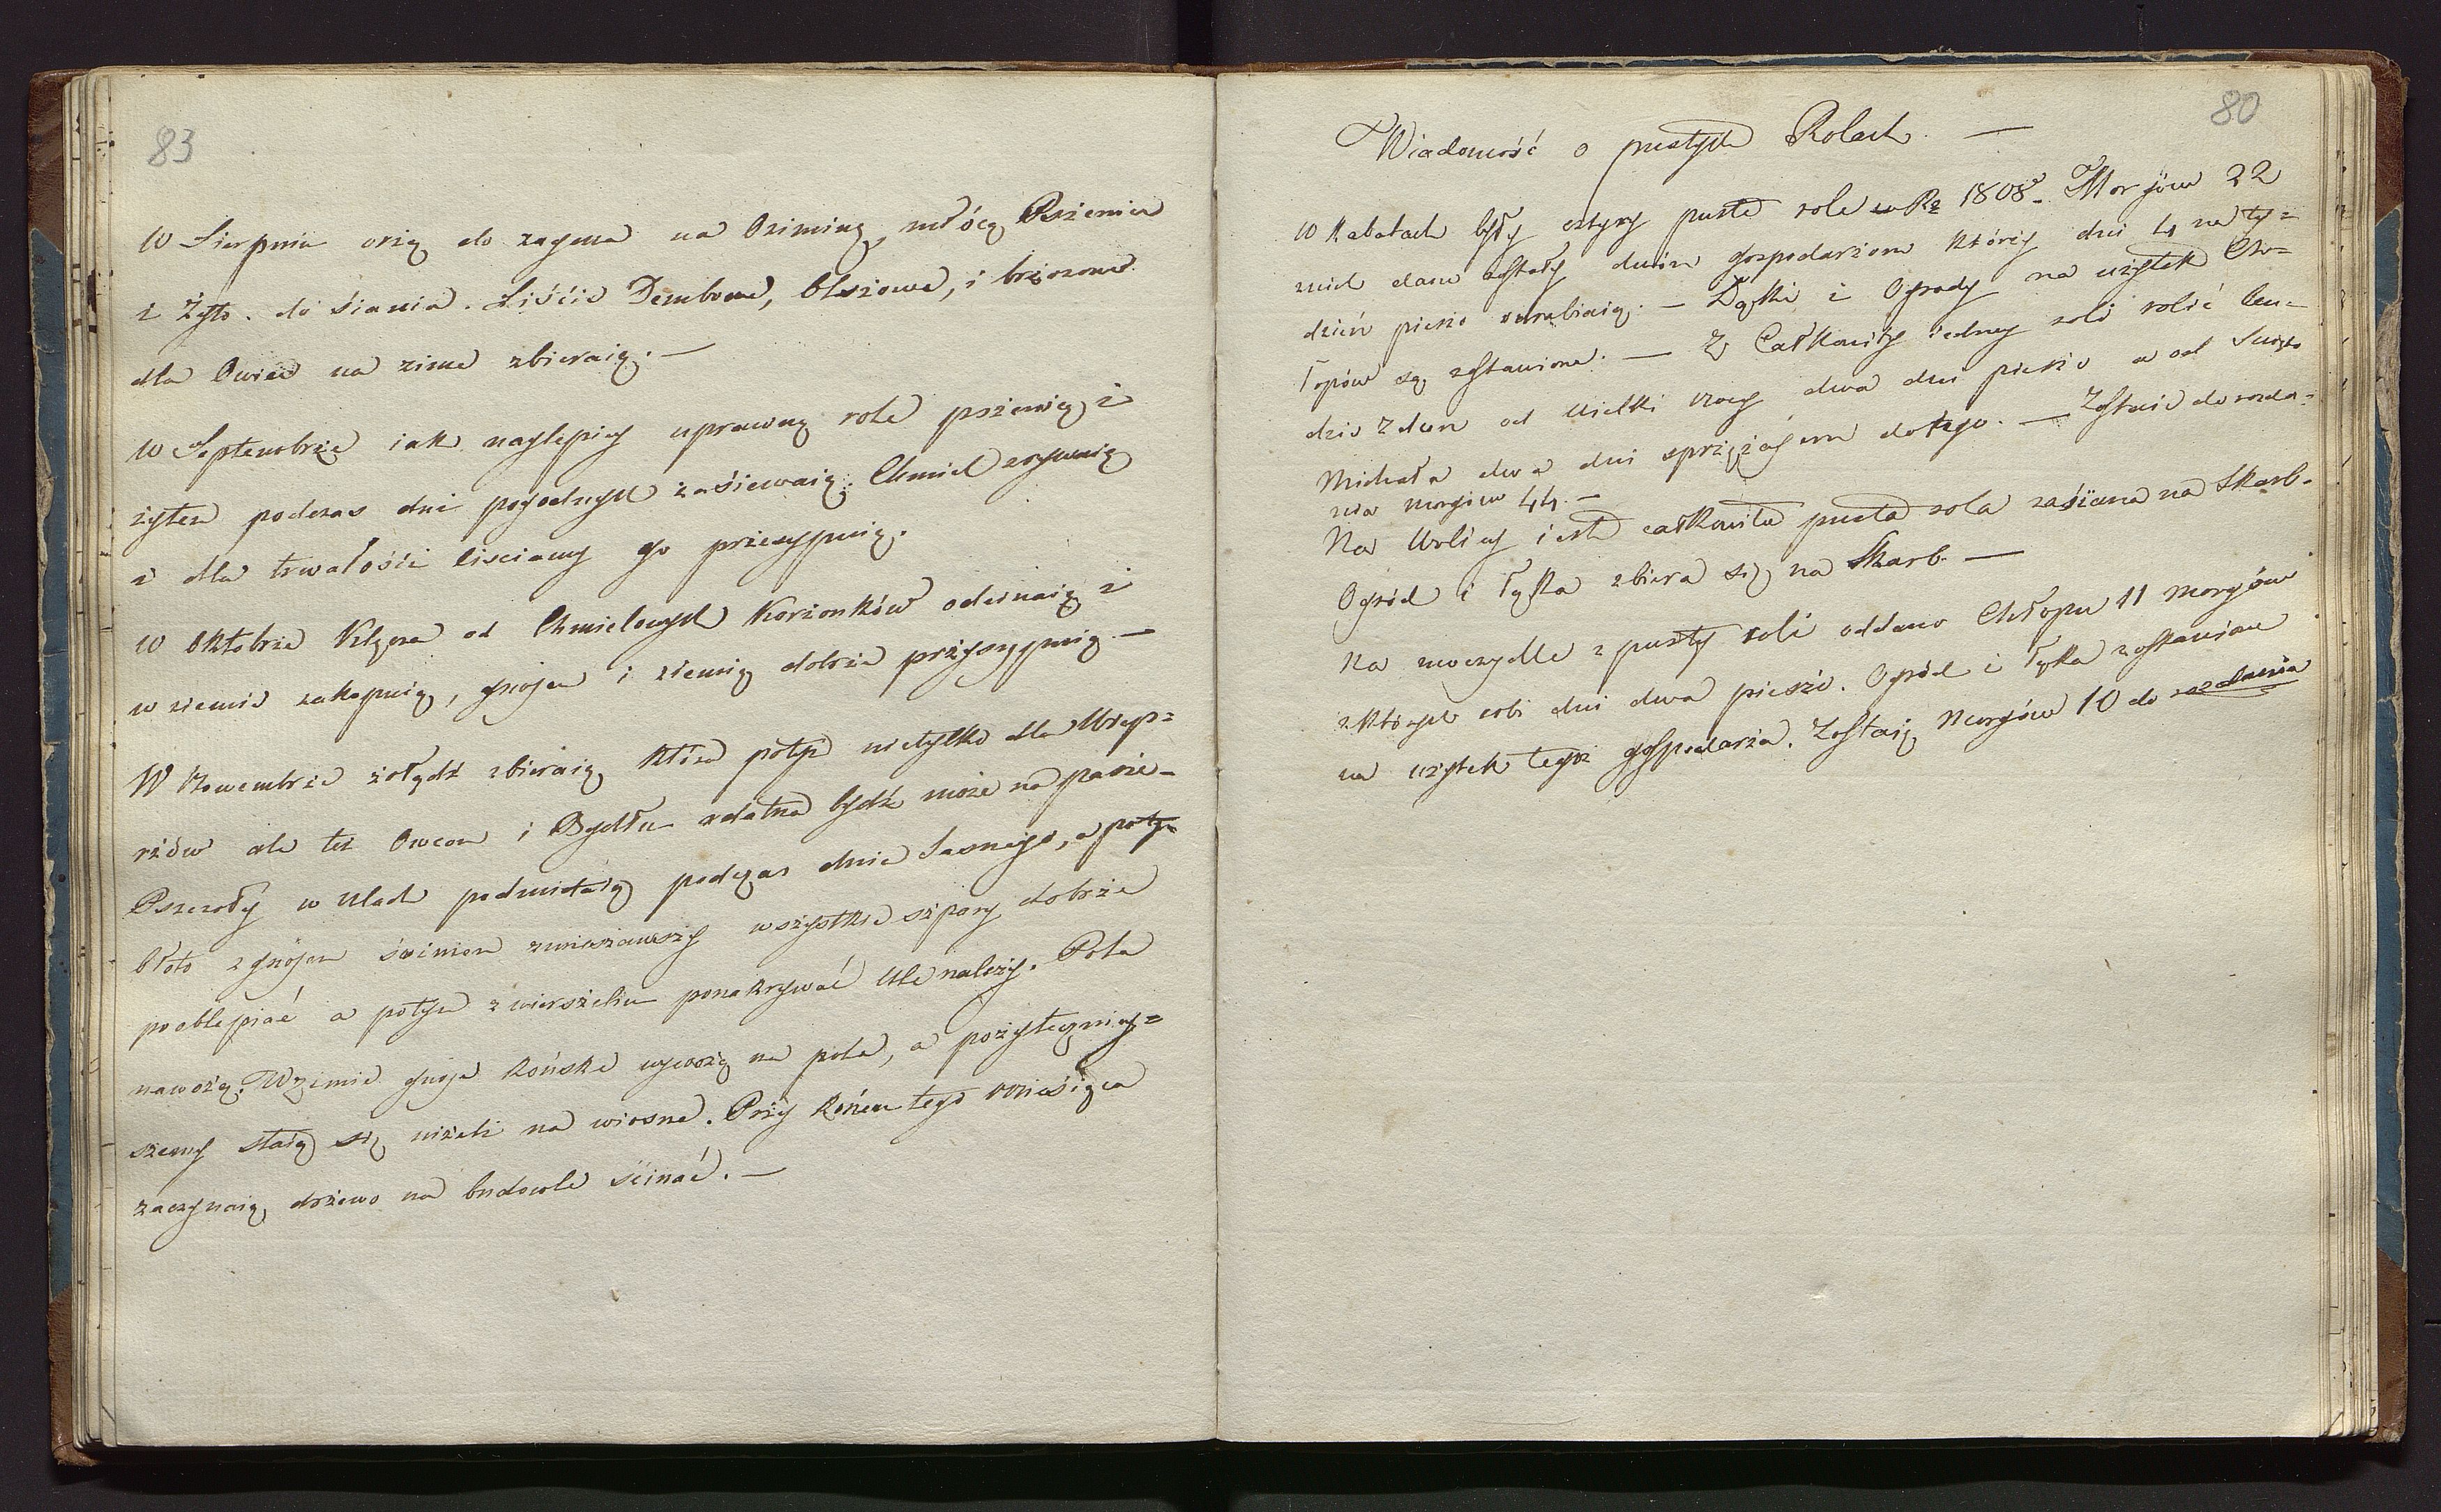 83
W Sierpniu orzą do zagona na Oziminę, młócą Pszenice
i Żyto do siania. Liściе Dembowe, Olszowe, i brzozowe
dla Owiec na zime zbieraią. —
W Septembrze iak naylepiey uprawną role pszenicą i
żytem podczas dni pogodnych zasiewaią. Chmiel zrywaią
i dla trwałości liściamy go przesypuią.
W Oktobrze od Chmielowych Korzonków odcinaią i
w ziemie zakopuią, gnojem i ziemią dobrze przysypuią. —
W Nowembrze żołądź zbieraią która potym nietylko dla Wiep=
rzów ale też Owcom i Bydłu zdatna bydź może na pasze —
Pszczoły w Ulach podmiataią podczas dnia Jasnego, a potym
błoto z gnojem świniem zmieszawszy wszystkie szpary dobrze
pooblepiać a potym z wierszchu ponakrywać Ule należy. Pola
nawożą. W zimie gnoje końskie wywożą na pola, a pożyteczniey=
szemy staią się niżeli na wiosne. Przy końcu tego miesiąca
zaczynaią drzewo na budowle ścinać. —
80
Wiadomość o pustych Rolach. —
W Kabatach były cztyry puste role w Rz 1808. Morgów 22
z nich dane zostały dwóm gospodarzom którzy dni 4 na ty=
dzień pieszo zarabiaią. — Łąki i Ogrody na użytek Chł=
opów są zostawione. — Z Całkowity iedney roli robić bę=
dzie Zdun od Wielki nocy dwa dni pieszo a od Swięto
Michała dwa dni sprzężayem do tego. — Zostaie do rozda=
nia morgów 44. —
Na Wolicy iest całkowita pusta rola zasiana na Skarb.
Ogród i Łąka zbiera się na Skarb. —
Na moczydle z pusty roli oddano Chłopu 11 morgów
z których robi dni dwa pieszo. Ogród i Łąka zostawione
na użytek tegoż gospodarza. Zostaią Morgów 10 do rozdania